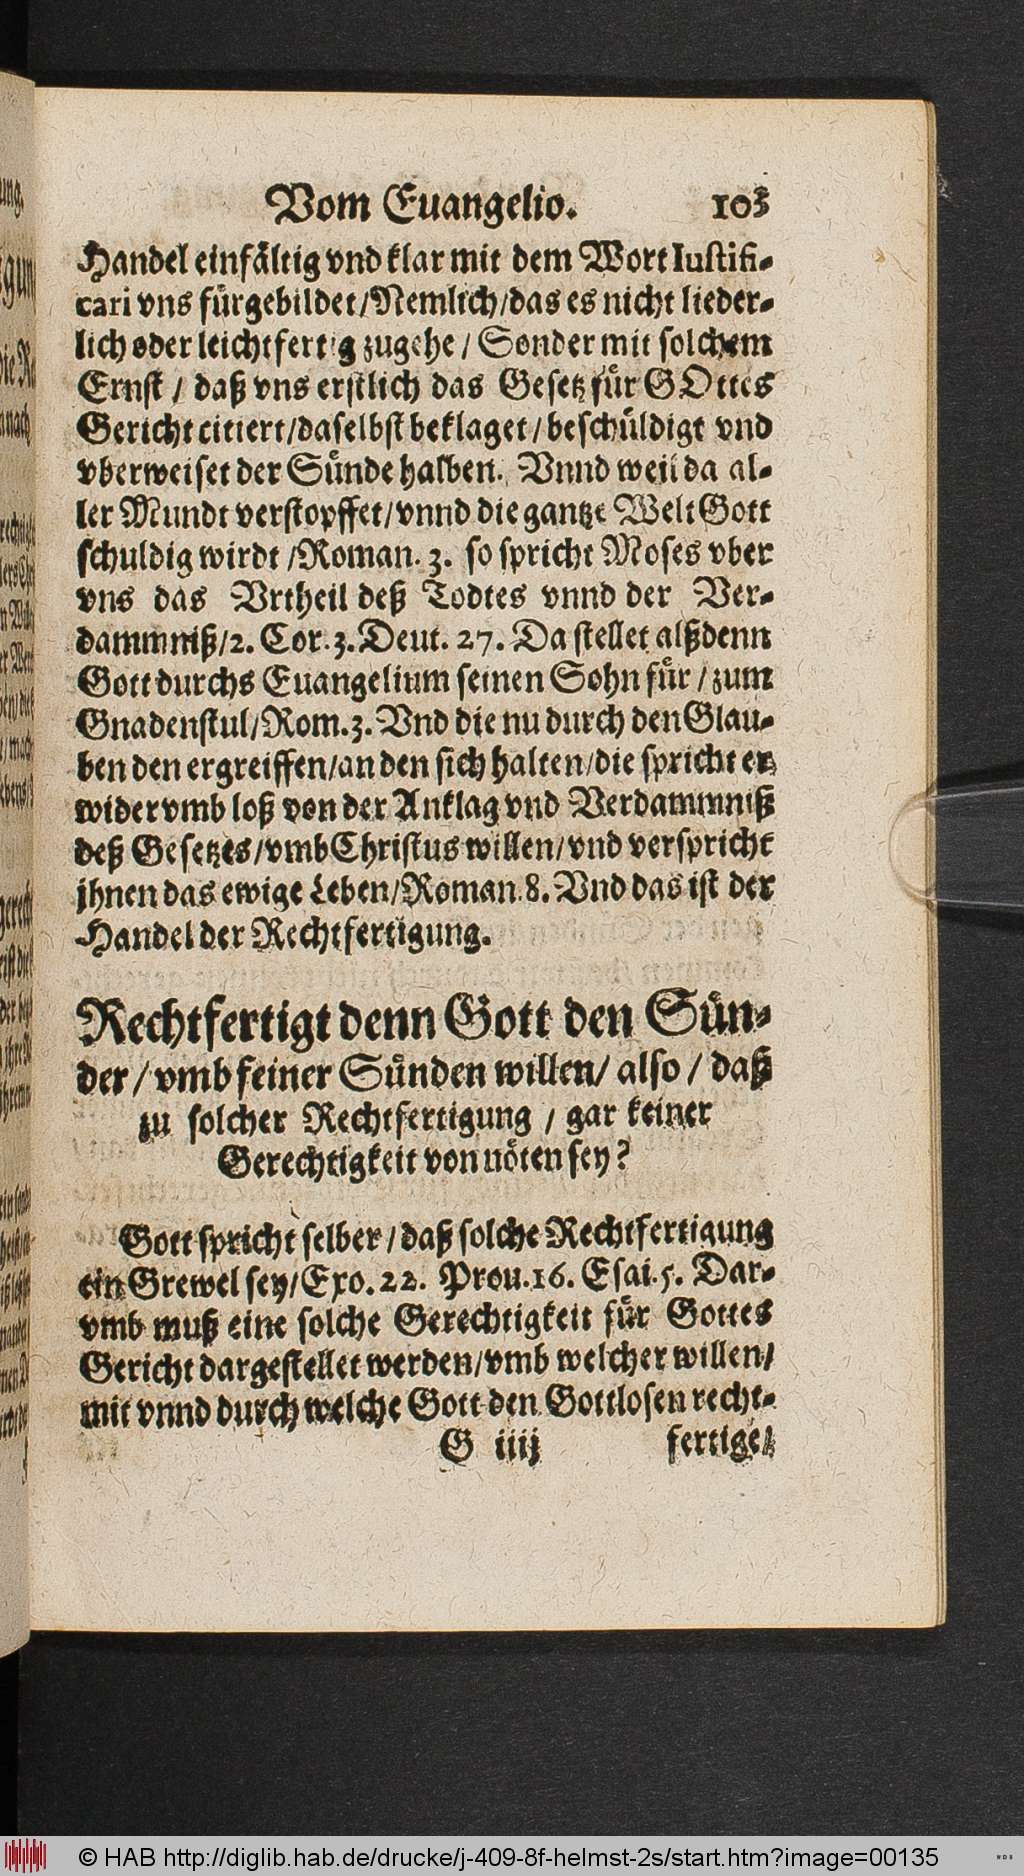 Vom Euangelio. 103
Handel einfältig vnd klar mit dem Wort Iustifi-
cari vns fürgebildet/Nemlich/das es nicht lieder-
lich oder leichtfertig zugehe / Sonder mit solchem
Ernst / daß vns erstlich das Gesetz für GOttes
Gericht citiert/daselbst beklaget/beschüldigt vnd
vberweiset der Sünde halben. Vnnd weil da al-
ler Mundt verstopffet/vnnd die gantze Welt Gott
schuldig wirdt /Roman. 3. so spricht Moses vber
vns das Vrtheil deß Todtes vnnd der Ver-
dammniß/2. Cor. 3. Deut. 27. Da stellet alßdenn
Gott durchs Euangelium seinen Sohn für / zum
Gnadenstul/Rom. 3. Vnd die nu durch den Glau-
ben den ergreiffen/an den sich halten/die spricht er
widervmb loß von der Anklag vnd Verdammniß
deß Gesetzes/vmb Christus willen/vnd verspricht
jhnen das ewige Leben/Roman. 8. Vnd das ist der
Handel der Rechtfertigung.
Rechtfertigt denn Gott den Sün-
der / vmb seiner Sünden willen/ also / daß
zu solcher Rechtfertigung / gar keiner
Gerechtigkeit von nöten sey?
Gott spricht selber / daß solche Rechtfertigung
ein Grewel sey/Exo. 22. Prou. 16. Esai. 5. Dar-
vmb muß eine solche Gerechtigkeit für Gottes
Gericht dargestellet werden/vmb welcher willen/
mit vnnd durch welche Gott den Gottlosen recht-
G iiij fertige/
© HAB http://diglib.hab.de/drucke/j-409-8f-helmst-2s/start.htm?image=00135